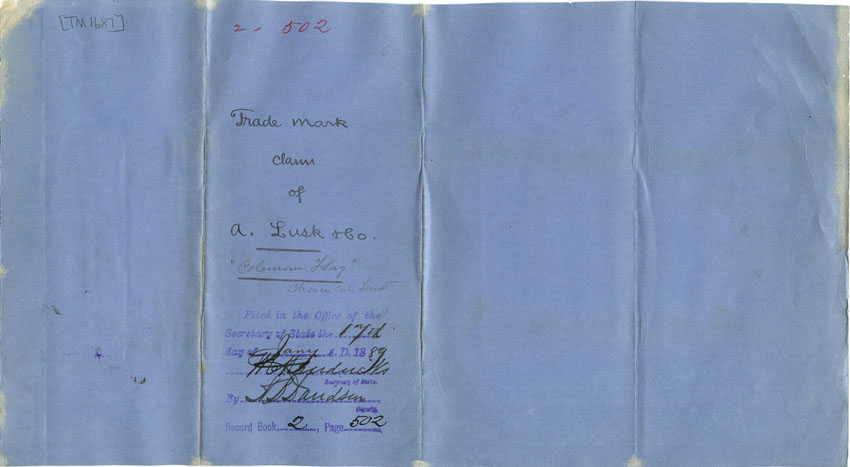 [TM1687]
2 - 502
6
Trade mark
claim
of
A. Lusk & Co.
"Coleman Flag"
Choice Cal. Fruit
Filed in the Office of the
Secretary of State the 17th
day of Jany A. D. 1889
W C Hendricks
Secretary of State.
By
Deputy.
Record Book, 2, Page 502